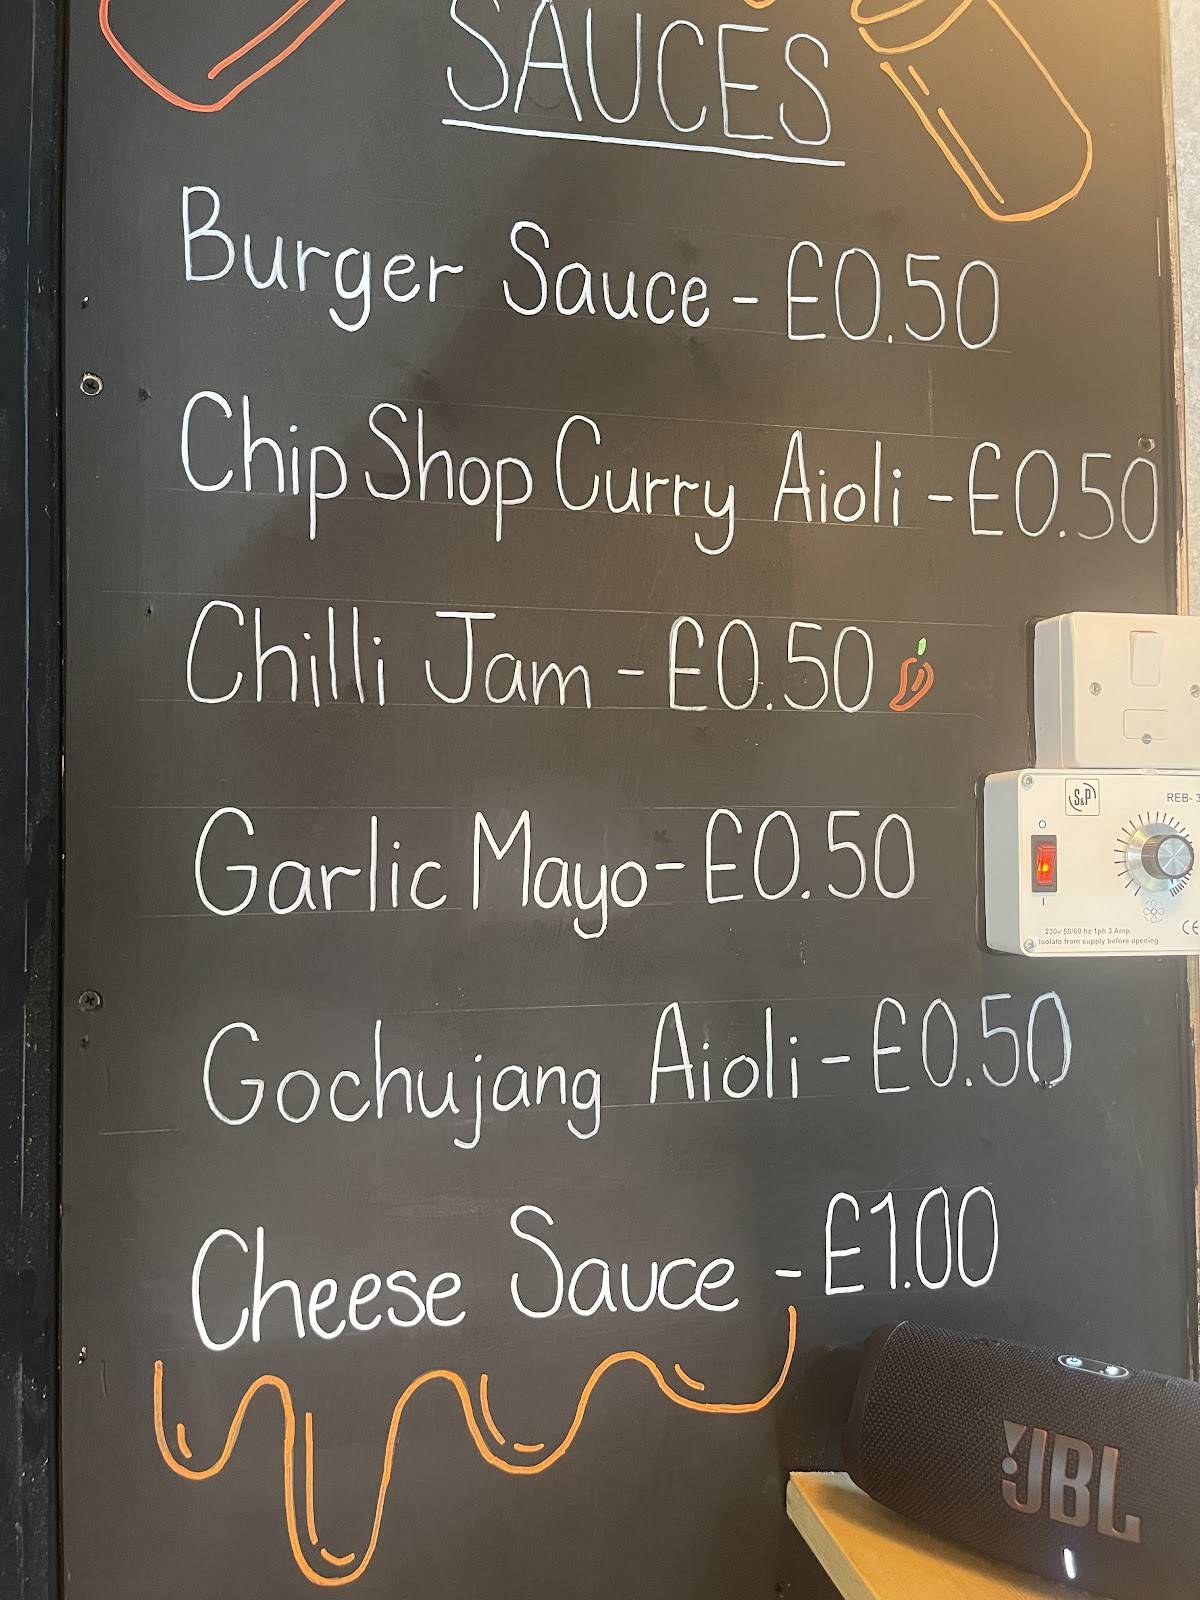 SAUCES
Burger Sauce - £0.50
Chip Shop Curry Aioli - £0.50
Chilli Jam - £0.50
Garlic Mayo - £0.50
Gochujang Aioli - £0.50
Cheese Sauce - £1.00
S&P
REB-
O
I
230v 50/60 hz 1ph 3 Amp.
Isolate from supply before opening
CE
JBL